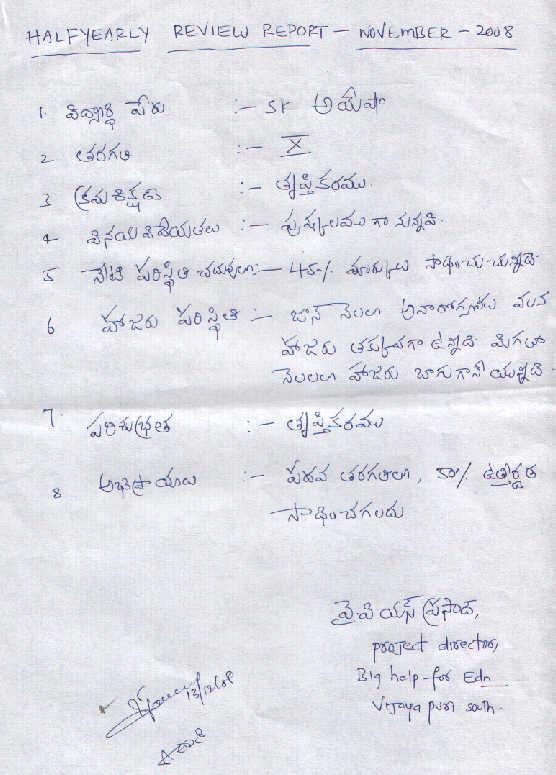 HALFYEARLY REVIEW REPORT - NOVEMBER - 2008
1. విద్యార్థి పేరు :- SK అయేషా
2 తరగతి :- X
3 క్రమశిక్షణ :- తృప్తికరము.
4 వినయవిధేయతలు :- పుష్కలముగా నున్నవి.
5 నేటి పరిస్థితి చదువులో :- 45% మార్కులు సాధించుచున్నది
6 హాజరు పరిస్థితి :- జూన్ నెలలో అనారోగ్యం వలన
హాజరు తక్కువగా ఉన్నది మిగతా
నెలలలో హాజరు బాగుగానే యున్నది.
7. పరిశుభ్రత :- తృప్తికరము
8 అభిప్రాయం :- పదవ తరగతిలో, ఉత్తీర్ణత
సాధించగలదు
వై.పి యస్ ప్రసాద్,
project director,
Big help-for Edn
Vijaya puri south.
13/12/08